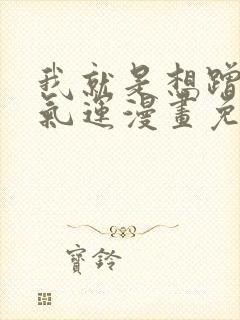 我就是想蹭
氣運漫畫免
寶鈴